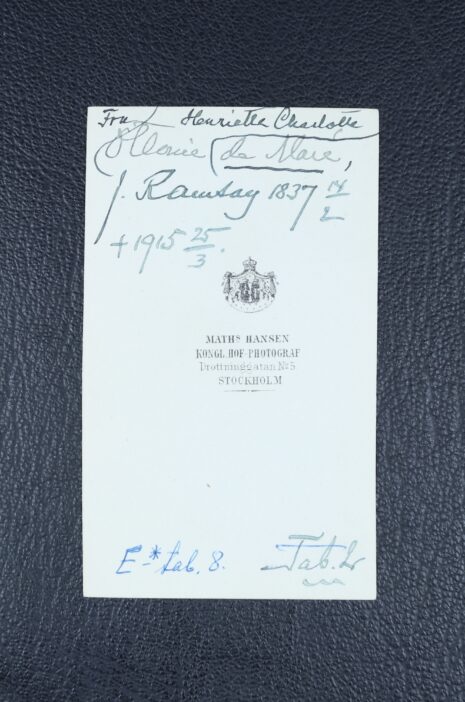 Fru Henrietta Charlotta
de Maré,
f. Ramsay 1837 14/2
+ 1915 25/3.
MATHS HANSEN
KONGL. HOF-PHOTOGRAF
Drottninggatan No 5
STOCKHOLM
E-* tab. 8.
Tab. L